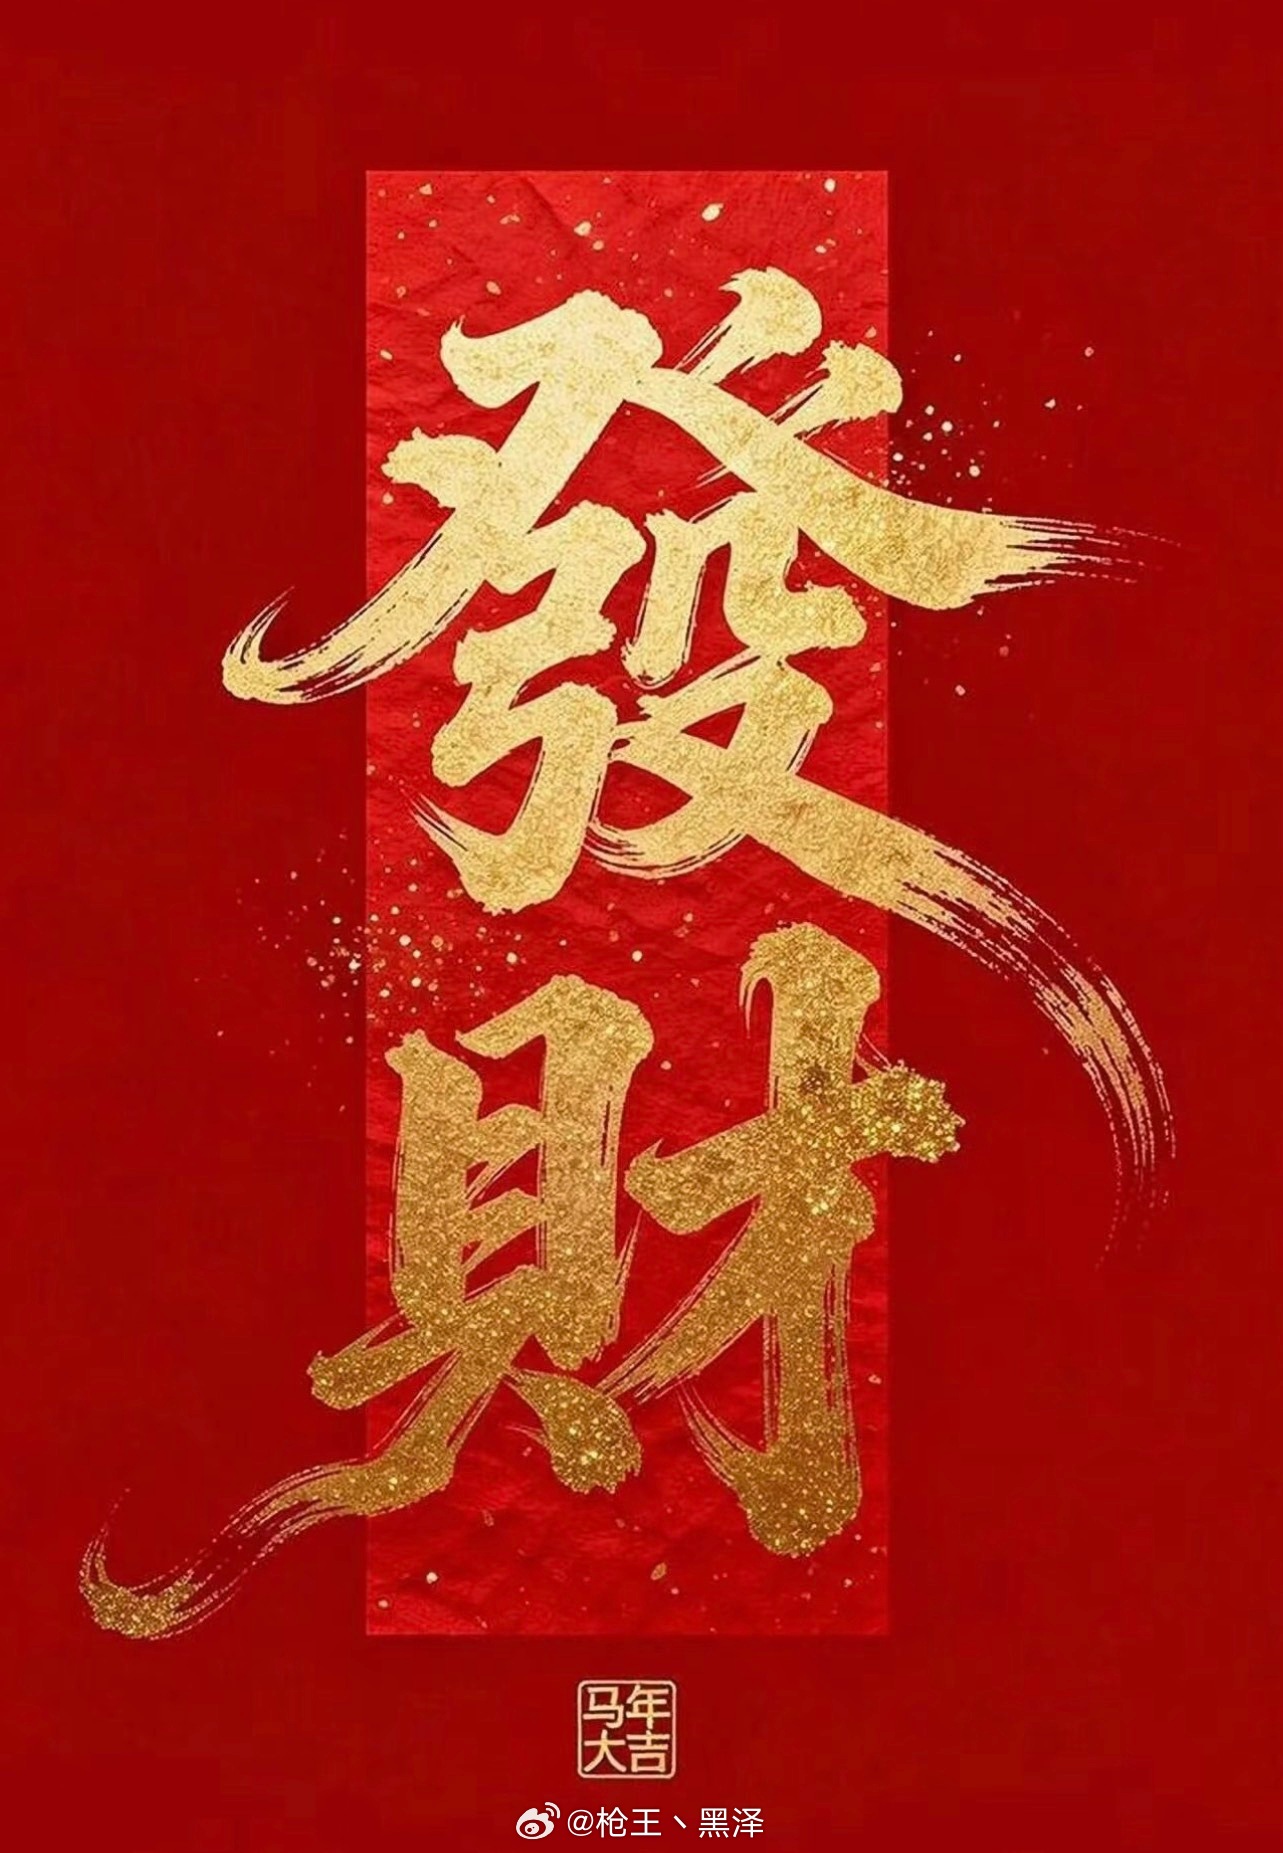 發財
马年
大吉
@枪王丶黑泽